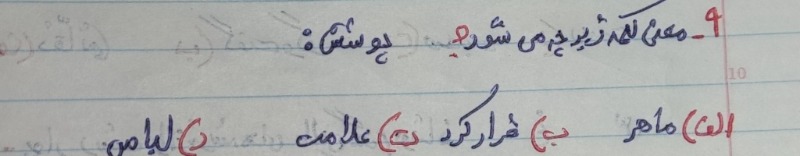 9_ معنی کلمه زیر چه می شود؟ پوشش:
الف) ماهر ب) فرار کرد ت) علامت ث) لباس